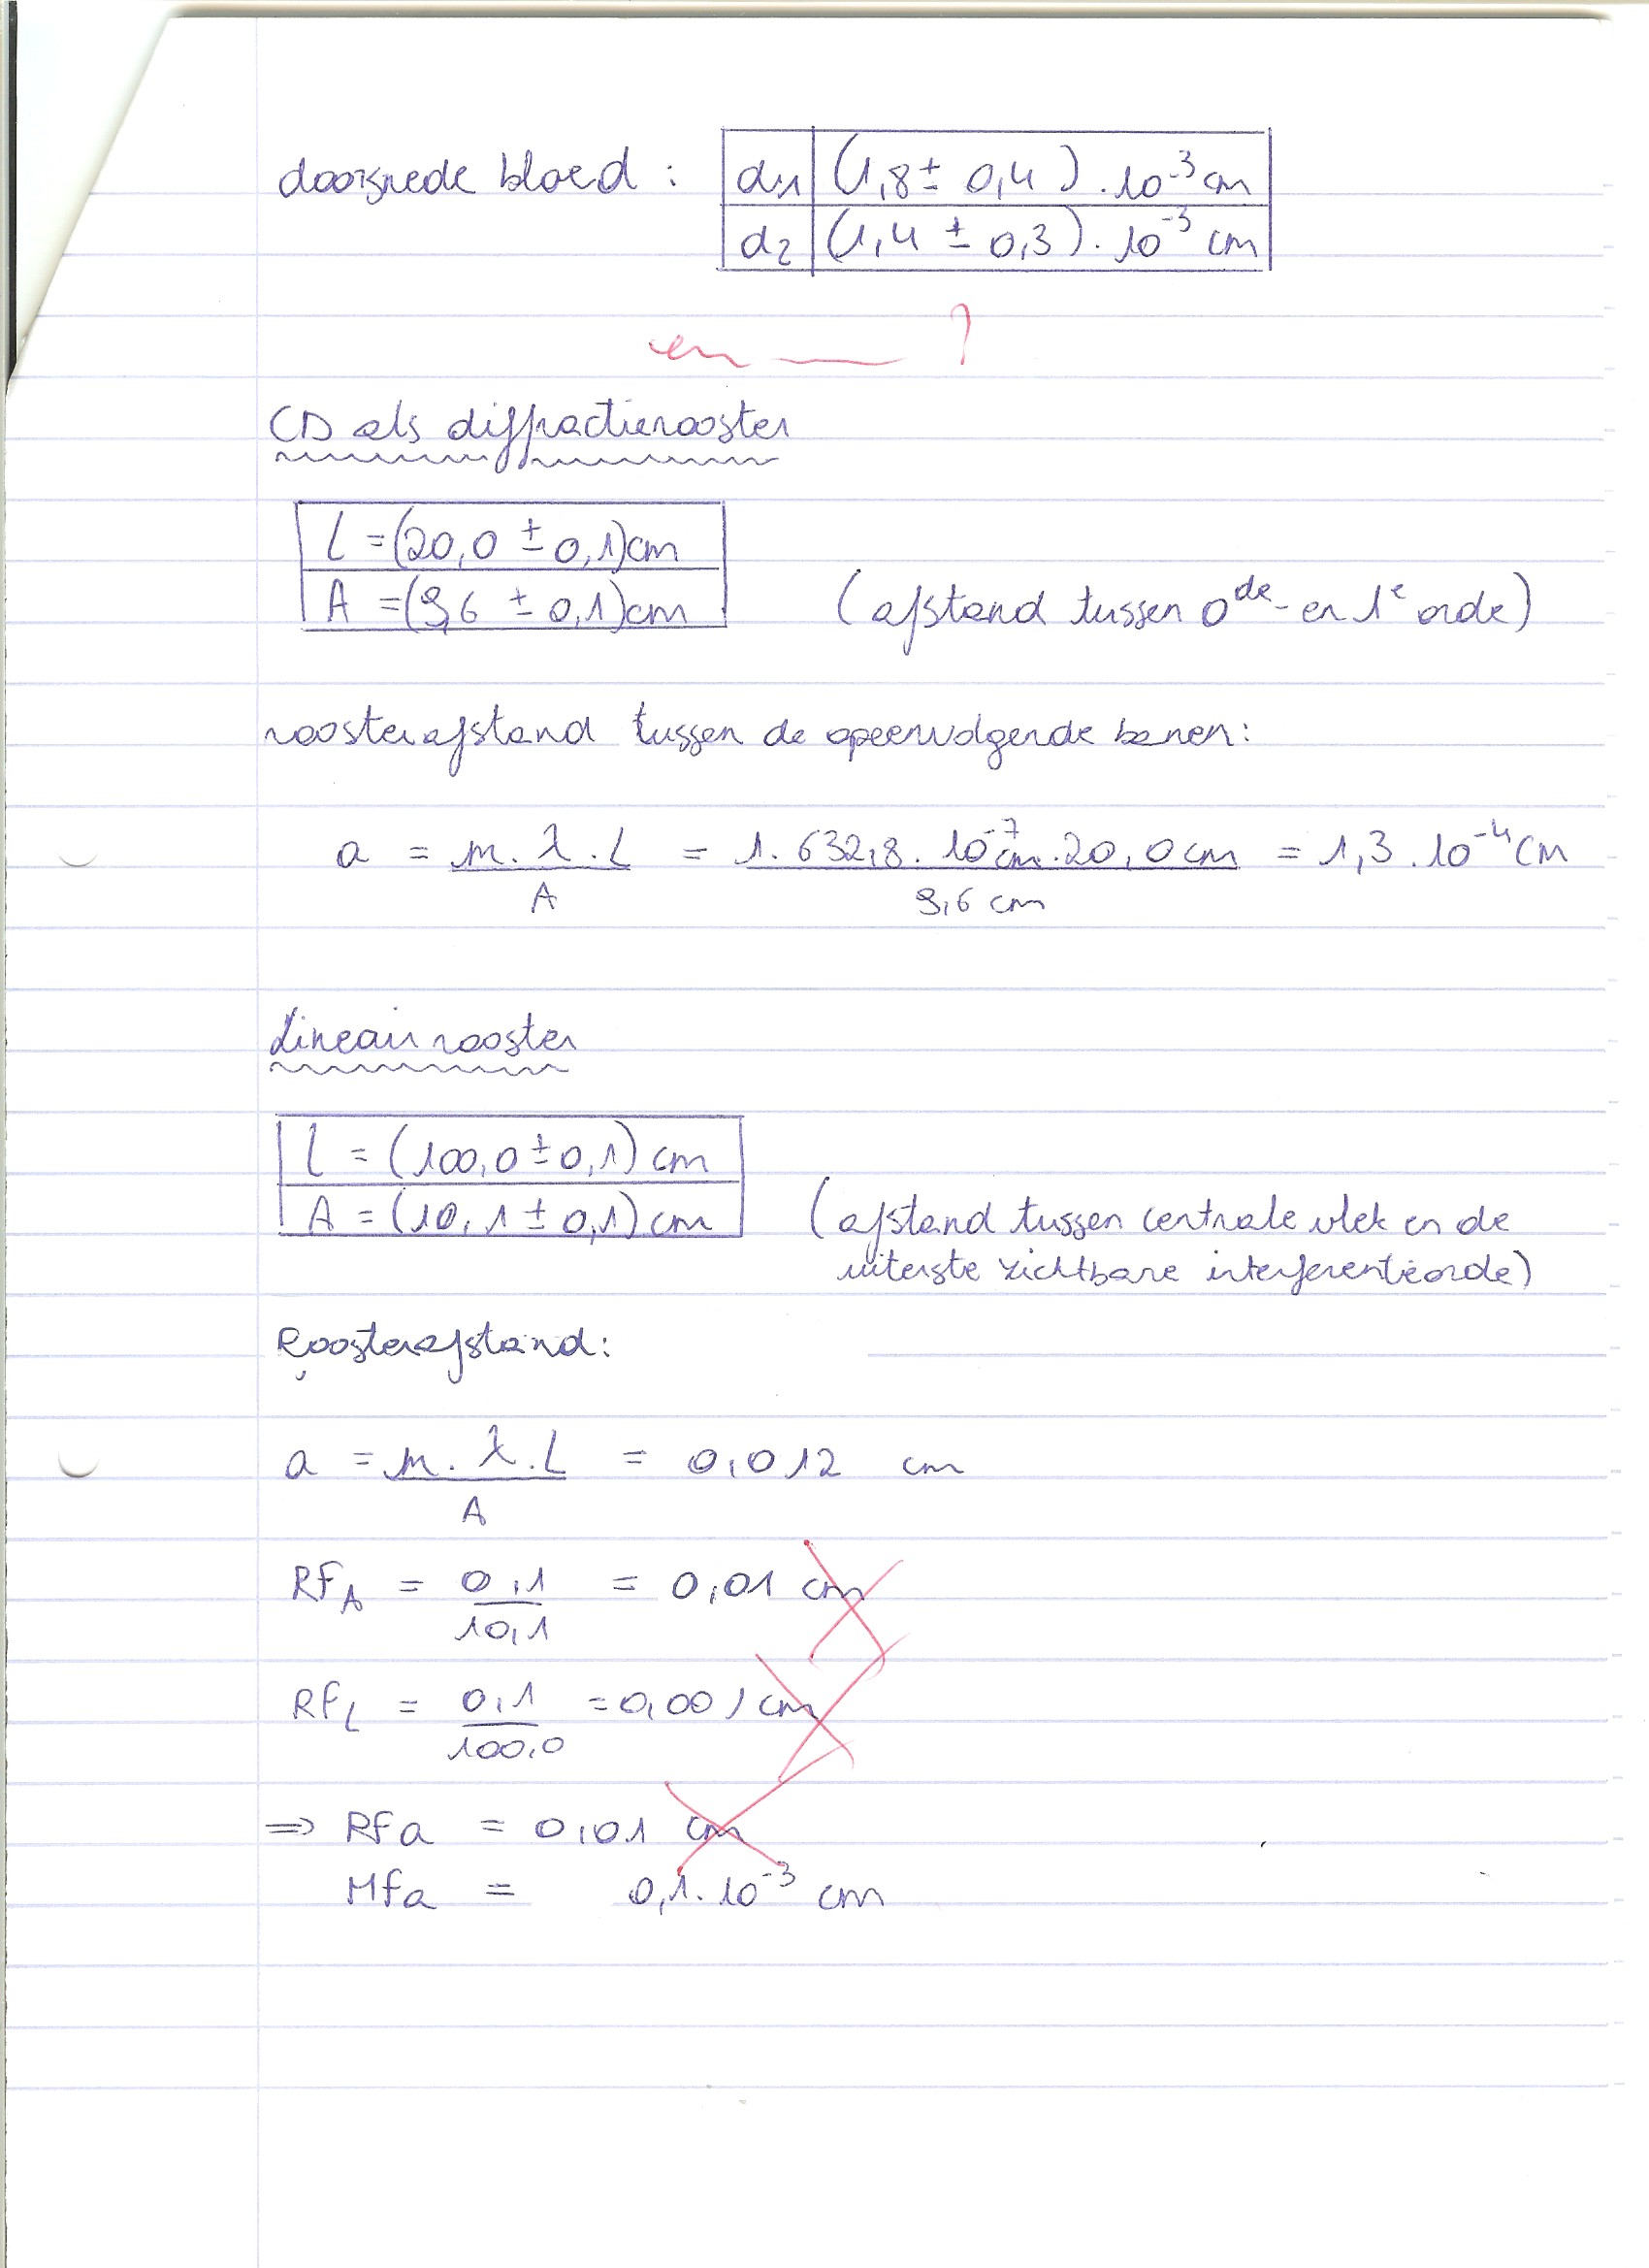 doorsnede bloed : d1 (1,8 ± 0,4 ) . 10⁻³ cm
d2 (1,4 ± 0,3 ) . 10⁻³ cm
en — ?
CD als diffractierooster
L = (20,0 ± 0,1) cm
A = (9,6 ± 0,1) cm (afstand tussen 0de- en 1e orde)
roosterafstand tussen de opeenvolgende banen:
a = m. λ. L / A = 1. 632,8. 10⁻⁷ cm. 20,0 cm / 9,6 cm = 1,3 . 10⁻⁴ cm
Lineair rooster
L = (100,0 ± 0,1) cm
A = (10,1 ± 0,1) cm (afstand tussen centrale vlek en de
uiterste zichtbare interferentieorde)
Roosterafstand:
a = m. λ. L / A = 0,012 cm
RFA = 0,1 / 10,1 = 0,01 cm
RFL = 0,1 / 100,0 = 0,001 cm
⇒ RFa = 0,01 cm
MFa = 0,1. 10⁻³ cm